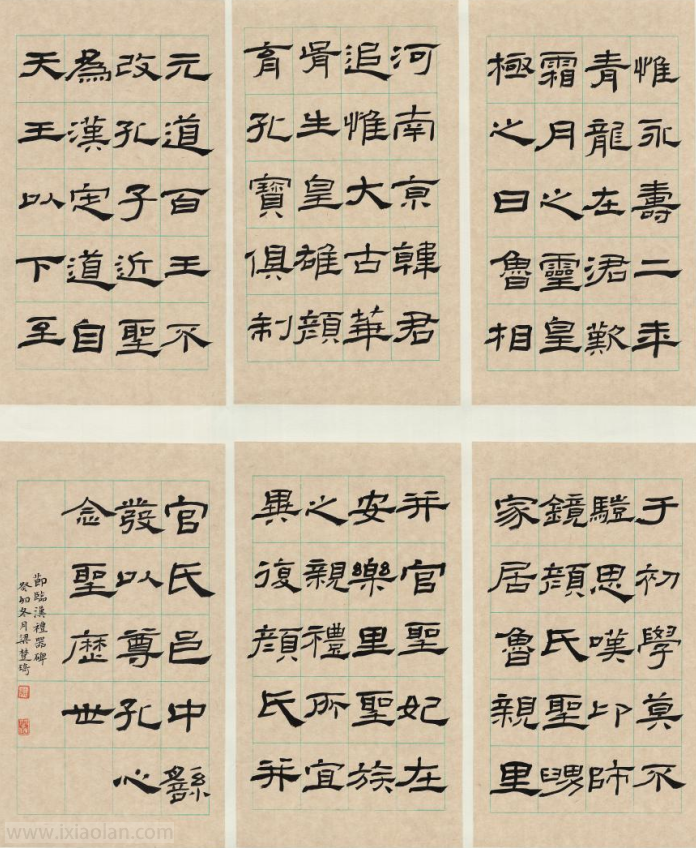 惟永壽二年
青龍在涒歎
霜月之靈皇
極之日魯相
河南亰韓君
追惟大古華
胥生皇雄顏
育孔寶俱制
元道百王不
改孔子近聖
為漢定道自
天王以下至
于初學莫不
𩥉思嘆卬師
鏡顏氏聖舅
家居魯親里
并官聖妃在
安樂里聖族
之親禮所宜
異復顏氏并
官氏邑中繇
發以尊孔心
念聖歷世
節臨漢禮器碑
癸卯冬月梁慧琦
www.ixiaolan.com